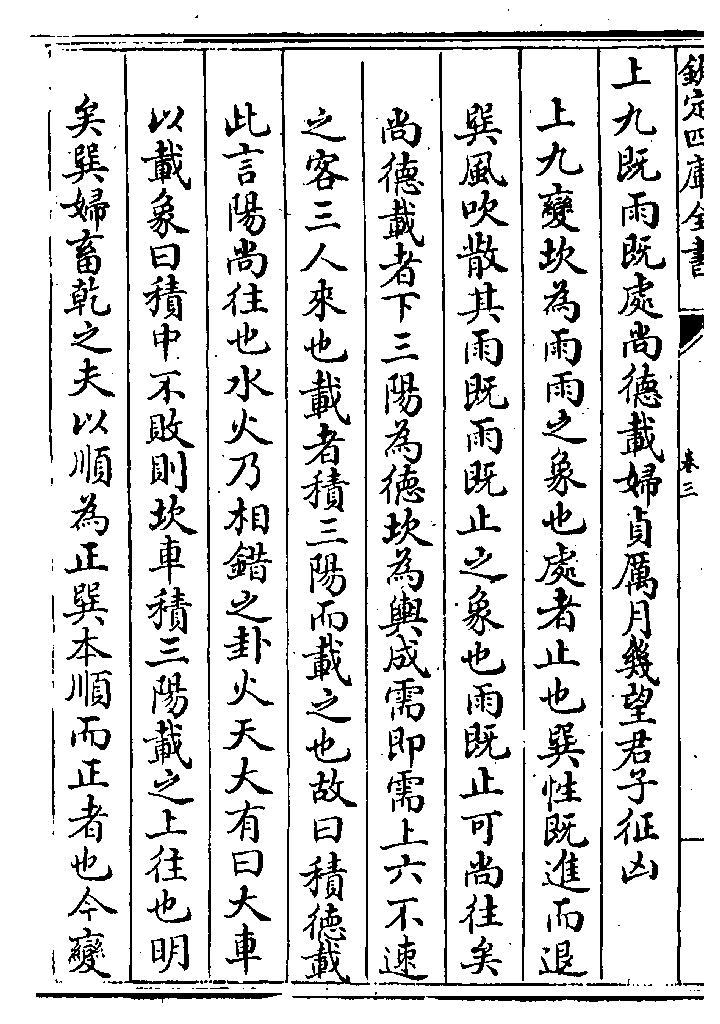 欽定四庫全書
卷三
上九既雨既處尚德載婦貞厲月幾望君子征凶
上九變坎為雨雨之象也處者止也巽性既進而退
巽風吹散其雨既雨既止之象也雨既止可尚往矣
尚德載者下三陽為德坎為輿成需即需上六不速
之客三人來也載者積三陽而載之也故曰積德載
此言陽尚往也水火乃相錯之卦火天大有曰大車
以載象曰積中不敗則坎車積三陽載之上往也明
矣巽婦畜乾之夫以順為正巽本順而正者也今變